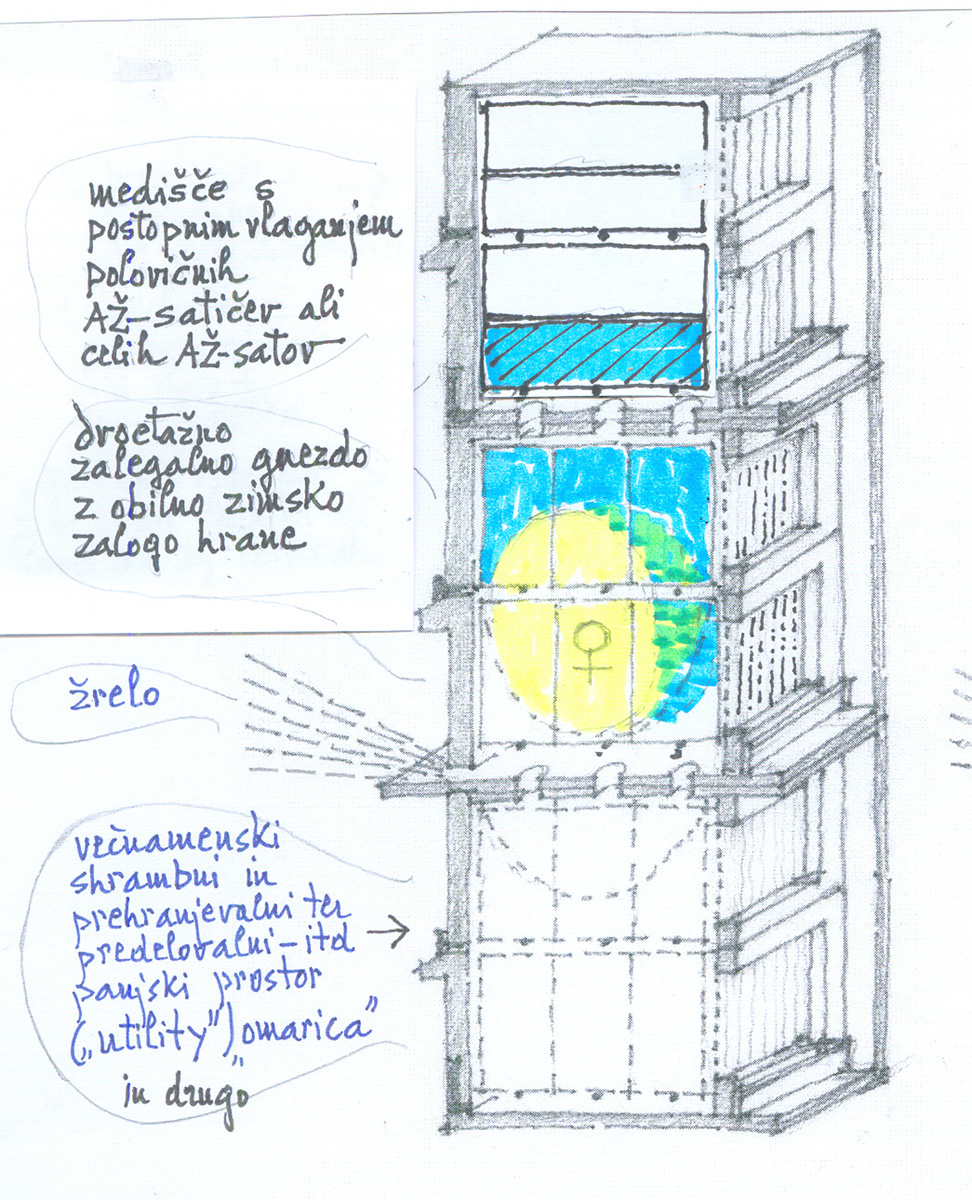 medišče s
postopnim vlaganjem
polovičnih
AŽ-satičev ali
celih AŽ-satov
dvoetažno
zalegalno gnezdo
z obilno zimsko
zalogo hrane
žrelo
večnamenski
shrambni in
prehranjevalni ter
predelovalni-itd
panjski prostor
(„utility") „omarica"
in drugo